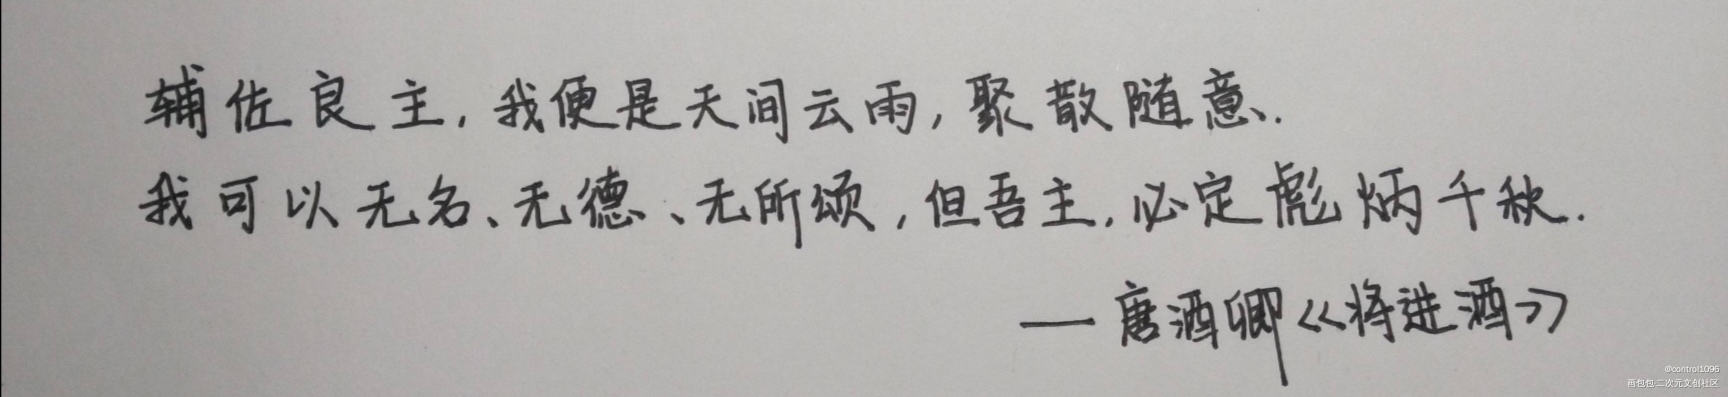 辅佐良主,我便是天间云雨,聚散随意.
我可以无名、无德、无所颂,但吾主,必定彪炳千秋.
— 唐酒卿《将进酒》
@control1096
画包包·二次元文创社区